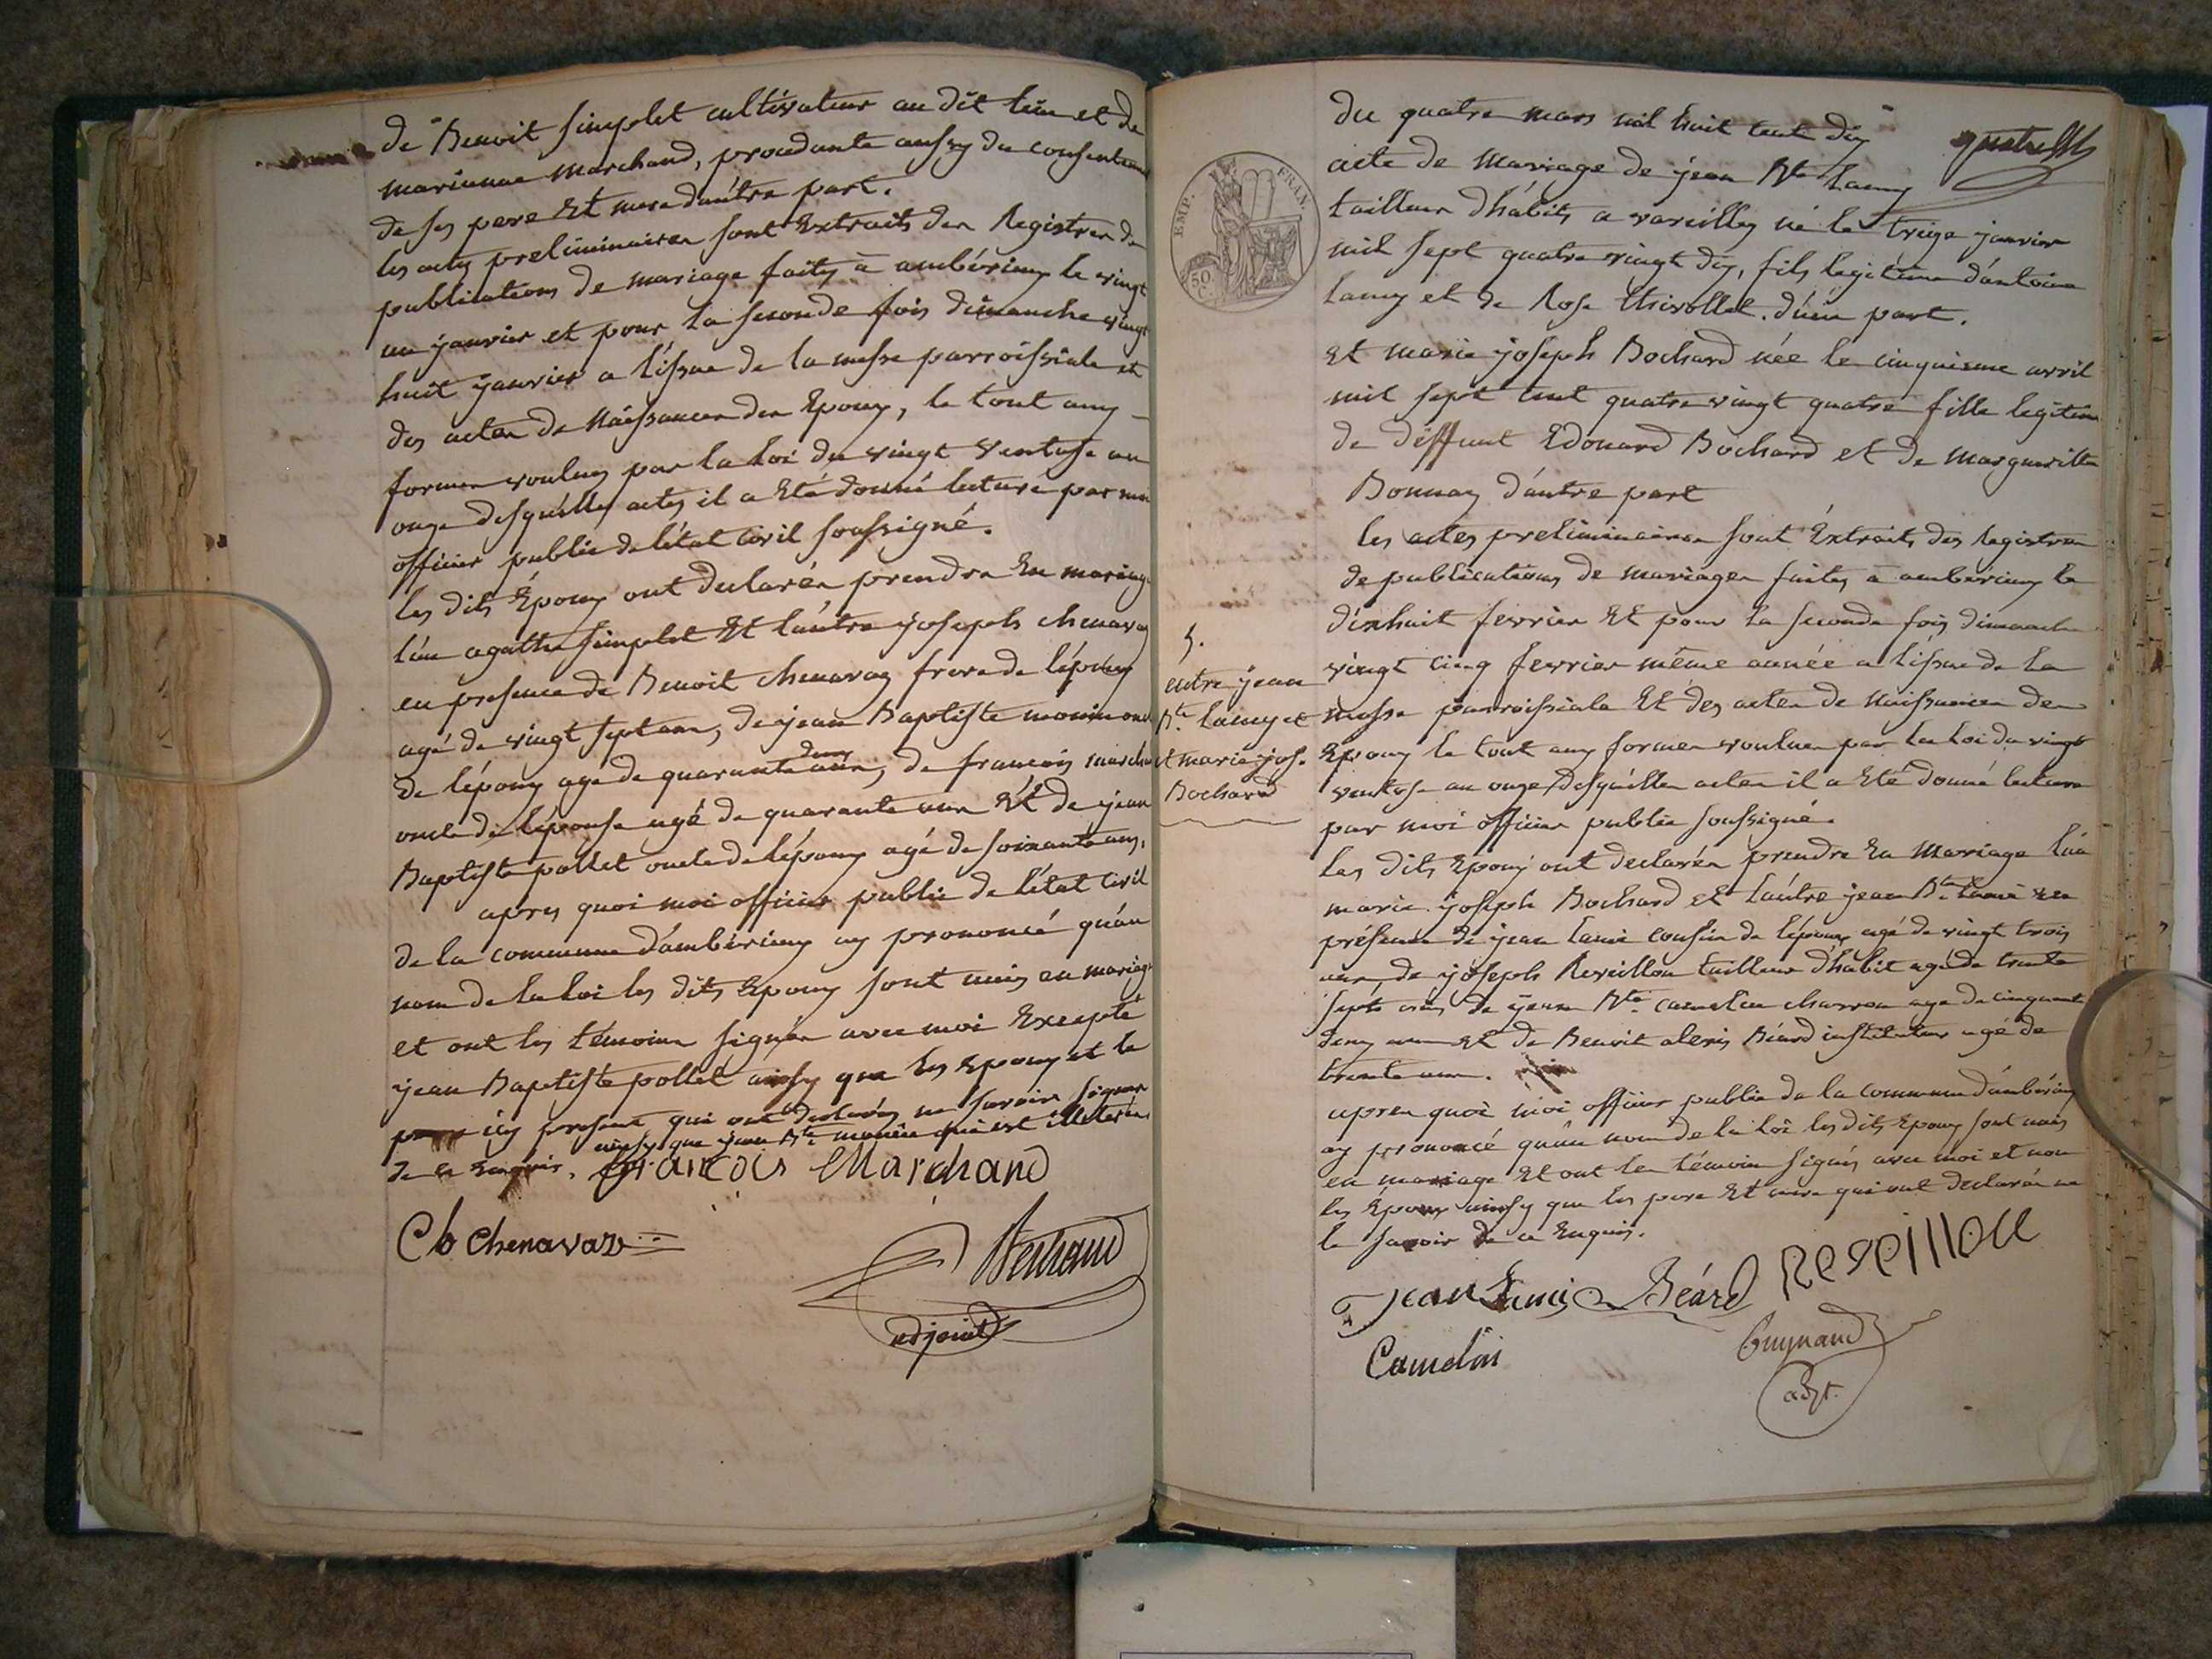 de Benoit simplet cultivateur au dit lieu et de
marianne marchand, procedante aussy du consentem
de ses pere Et mere d'autre part.
les actes preliminaires sont Extraits des Registres de
publications de mariage faites à ambérieux le vingt
un janvier et pour la seconde fois dimanche vingt
huit janvier a l'issue de la messe parroissiale et
des actes de Naissances des Epoux, le tout aux
formes voulues par la loi du vingt Ventose an
onze desquelles actes il a Eté donné lecture par moi
officier public de l'état civil soussigné.
les dits Époux ont declarés prendre En mariage
l'un agathe simplet Et l'autre joseph chenavaz
en presence de Benoit chenavaz frere de l'époux
agé de vingt sept ans, de jean Baptiste monin oncle
de l'époux age de quarante deux ans, de francois marchand
oncle de l'épouse agé de quarante ans Et de jean
Baptiste pollet oncle de l'époux agé de soixante ans,
apres quoi moi officier public de l'état civil
de la commune d'ambérieux ay prononcé qu'au
nom de la loi les dits Epoux sont unis en mariage
et ont les témoins signés avec moi Excepté
jean Baptiste pollet ainsy que les Epoux et le
icy present qui ont declarés ne savoir signer
ainsy que jean Bte monin qui est illeteré
de ce Enquis. francois Marchand
Cb Chenavaz
Bertrand
adjoint
EMP. FRAN.
50
C.
du quatre mars mil huit cent dix
acte de Mariage de jean Bte Lamy
tailleur d'habits a vareilles né le treize janvier
mil sept quatre vingt dix, fils legitime d'antoine
Lamy et de Rose thivollet. d'une part.
Et marie joseph Bochard née le cinquieme avril
mil sept cent quatre vingt quatre fille legitime
de deffunt Edouard Bochard et de Margueritte
Bonnaz d'autre part
les actes preliminaires sont Extraits des Registres
de publications de mariages faites à ambérieux le
dixhuit fevrier Et pour la seconde fois dimanche
vingt cinq fevrier même année a l'issue de la
messe parroissiale Et des actes de Naissances des
Epoux le tout aux formes voulues par la loi du vingt
ventose an onze desquelles actes il a Eté donné lecture
par moi officier public soussigné.
Les dits Epoux ont declarés prendre En Mariage l'un
marie joseph Bochard et l'autre jean Bte Lamie en
présence de jean Lamie cousin de l'époux agé de vingt trois
ans, de joseph Reveillon tailleur d'habit agé de trente
sept ans de jean Bte camelin charron age de cinquante
deux ans et de Benoit alexis Béard instituteur agé de
trente ans.
apres quoi moi officier public de la commune d'ambérieux
ay prononcé qu'au nom de la loi les dits Epoux sont unis
en mariage Et ont les témoins signés avec moi et non
les Époux ainsy que les pere Et mere qui ont declarés ne
le savoir de ce Enquis.
5.
entre jean
Bte Lamy et
et marie jos.
Bochard
jean Lamie Béard Reveillon
Camelin
Guynand
adjt.